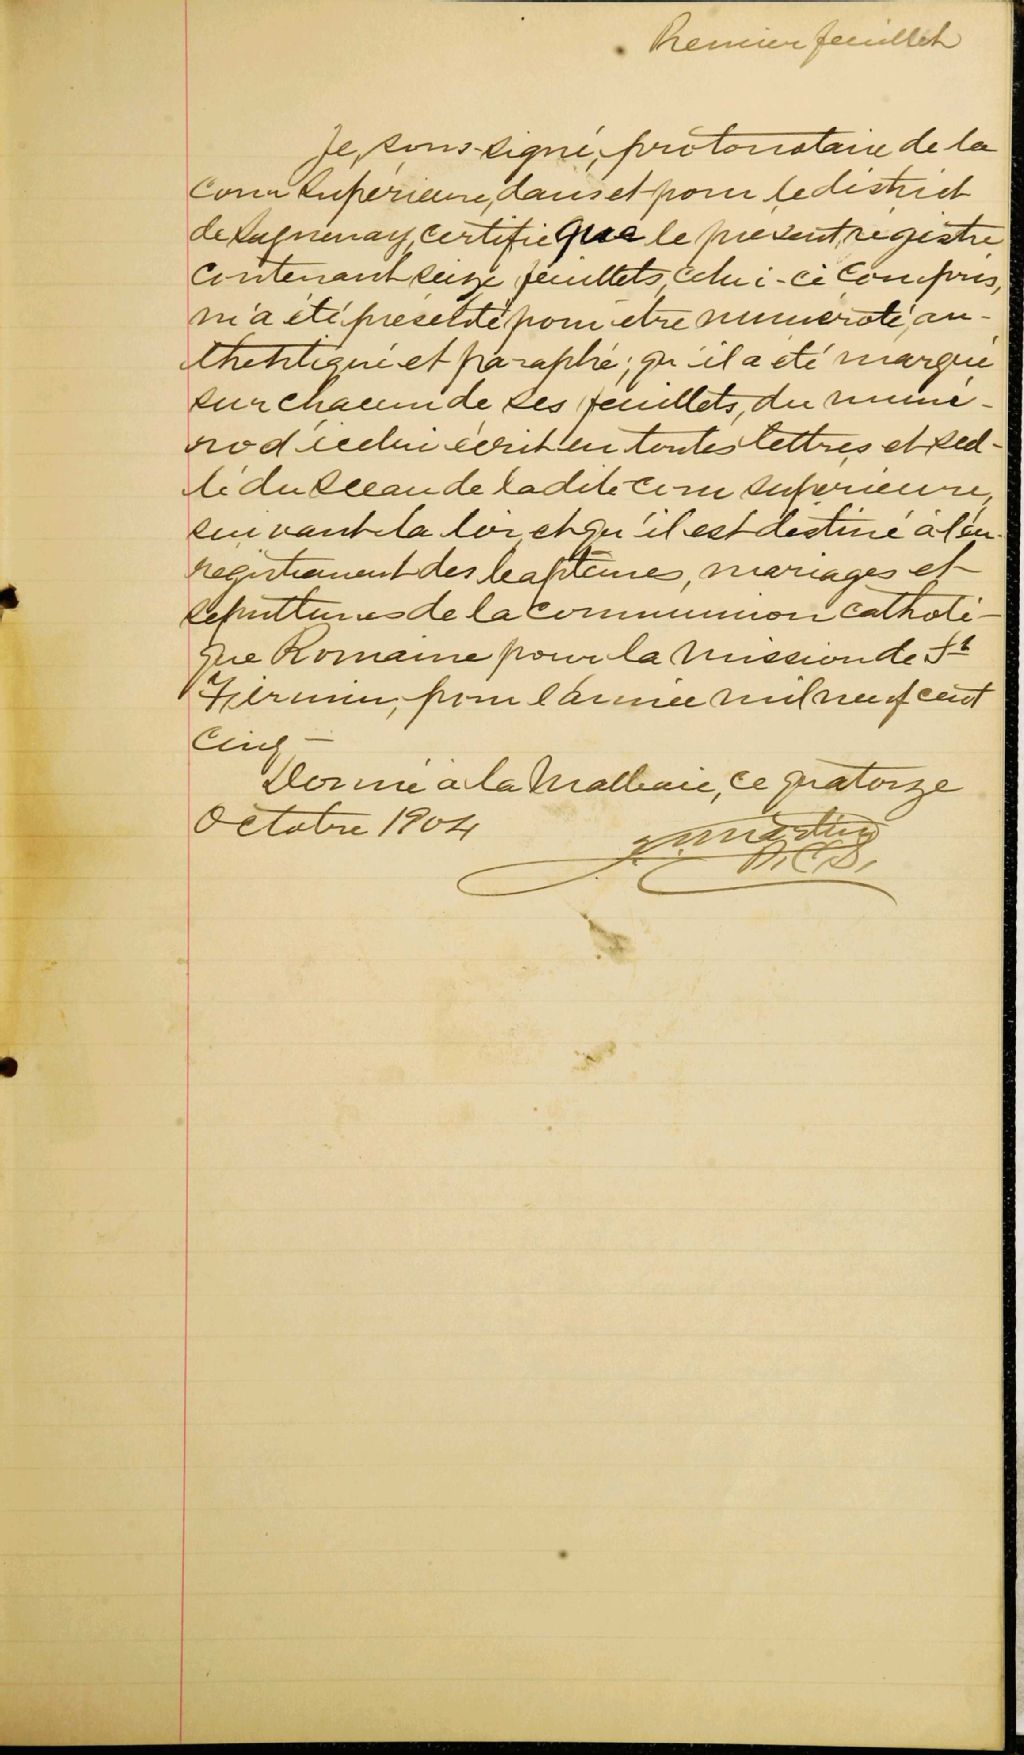 Premier feuillet
Je, sous-signé, protonotaire de la
cour Supérieure, dans et pour le district
de Saguenay, certifie que le présent, régistre
contenant seize feuillets, celui-ci compris,
m'a été présenté pour être numéroté, au-
thentiqué et paraphé; qu'il a été marqué
sur chacun de ses feuillets, du numé-
ro d'icelui écrit en toutes lettres et scel-
lé du sceau de ladite cour supérieure,
suivant la loi, et qu'il est destiné à l'en-
registrement des baptêmes, mariages et
sépultures de la communion catholi-
que Romaine pour la mission de St
Firmin, pour l'année mil neuf cent
cinq -
Donné à la Malbaie, ce quatorze
Octobre 1904
Martin
P.C.S.